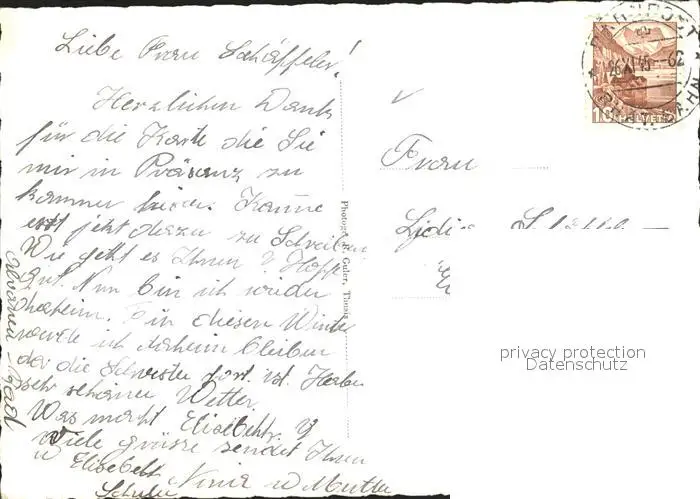 Liebe Frau Schäppeler!
Herzlichen Dank
für die Karte die Sie
mir in Präsanz zu
kommen liesen. Kanne
erst jetzt dazu zu Schreiben
Wie geht es Ihnen? Hoffe
gut. Nun bin ich wieder
daheim. Bin diesen Winter
werde ich daheim bleiben
da die Schwester fort ist. Haben
sehr schönes Wetter
Was macht Elisabeht. ?
Viele grüsse sendet Ihnen
u Elisebeht
Schuler Nina u Mutter
Alvaneu-Bad
Photogr. E. Guler, Thusis
BAHNPOST
26.XI.45
HELVETIA
Frau
privacy protection
Datenschutz